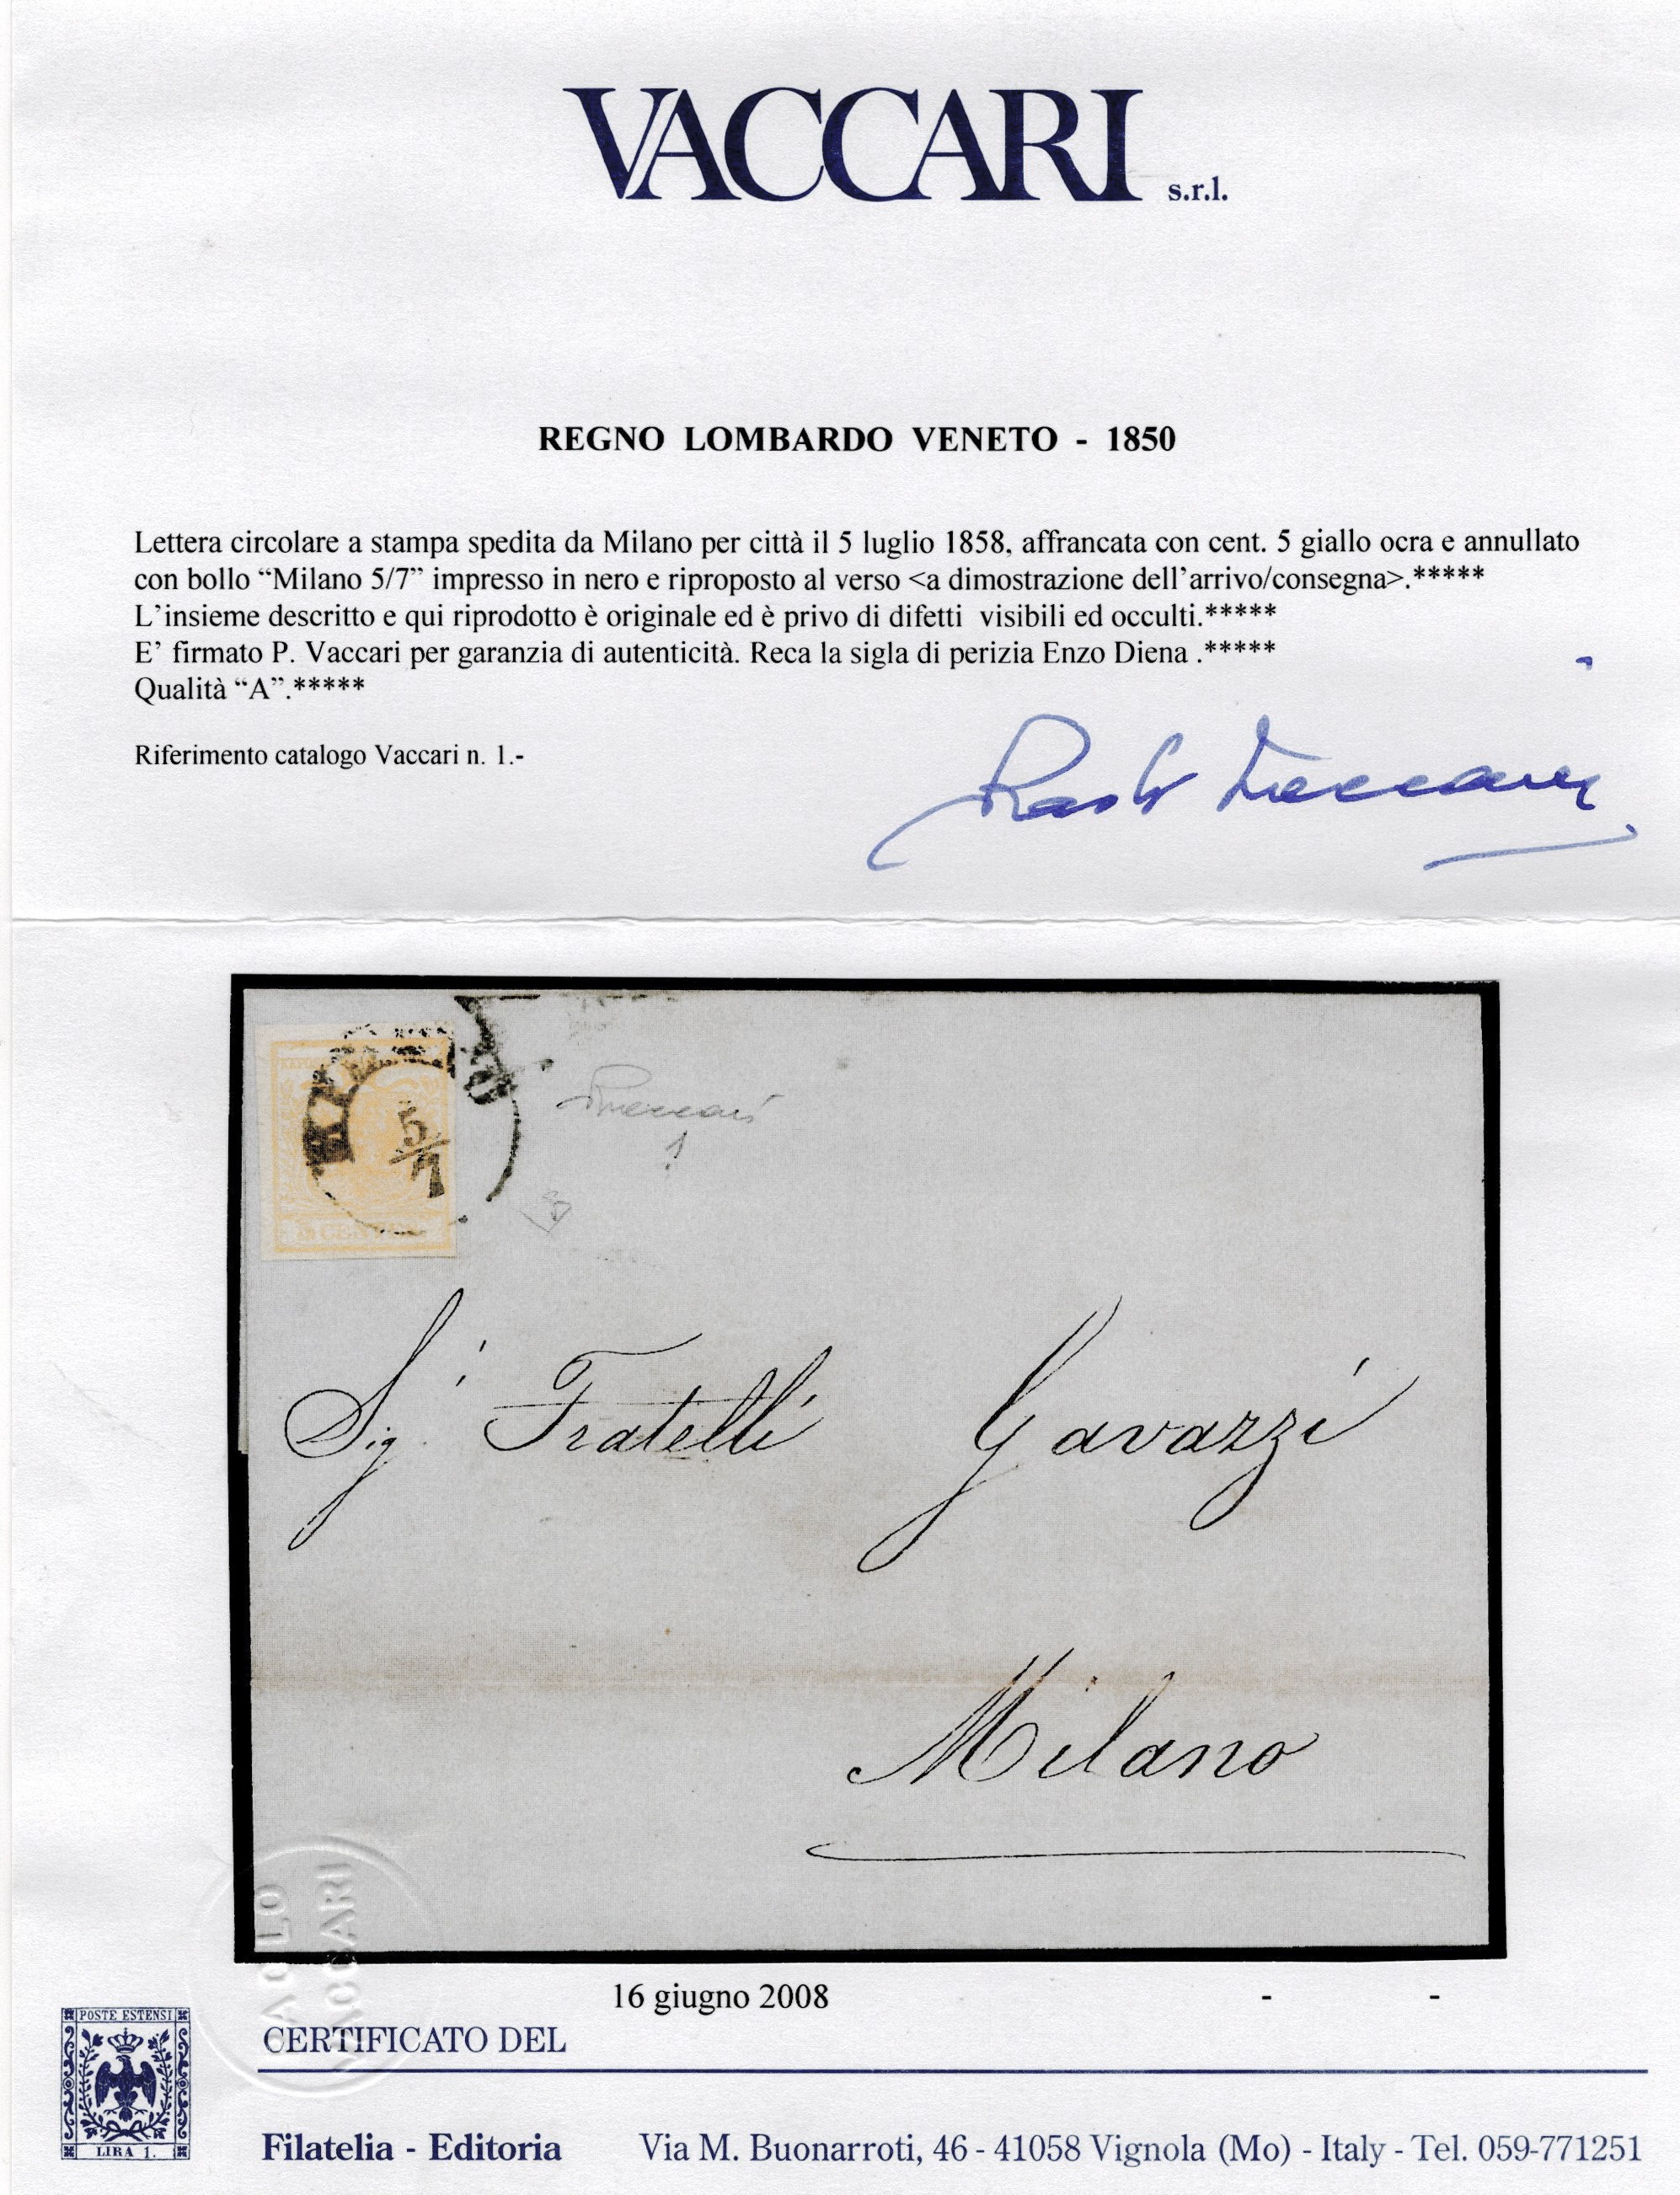 VACCARI s.r.l.
REGNO LOMBARDO VENETO - 1850
Lettera circolare a stampa spedita da Milano per città il 5 luglio 1858, affrancata con cent. 5 giallo ocra e annullato
con bollo “Milano 5/7” impresso in nero e riproposto al verso <a dimostrazione dell’arrivo/consegna>.*****
L’insieme descritto e qui riprodotto è originale ed è privo di difetti visibili ed occulti.*****
E’ firmato P. Vaccari per garanzia di autenticità. Reca la sigla di perizia Enzo Diena .*****
Qualità “A”.*****
Riferimento catalogo Vaccari n. 1.-
Paolo Vaccari
5/7
PVaccari
1
Sig.i Fratelli Gavazzi
Milano
PAOLO
VACCARI
16 giugno 2008 - -
CERTIFICATO DEL
POSTE ESTENSI
LIRA 1.
Filatelia - Editoria Via M. Buonarroti, 46 - 41058 Vignola (Mo) - Italy - Tel. 059-771251